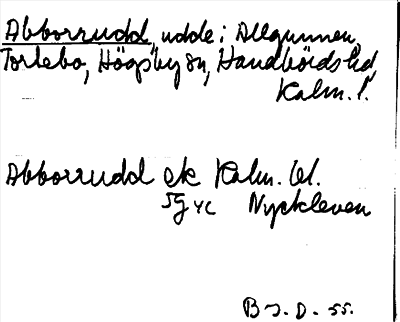 Abborrudd, udde i Allgunnen,
Torlebo, Högsby sn, Handbörds hd,
Kalm. l.
Abborrudd ek Kalm. bl.
5g Nyckleven
B J. D. 55.